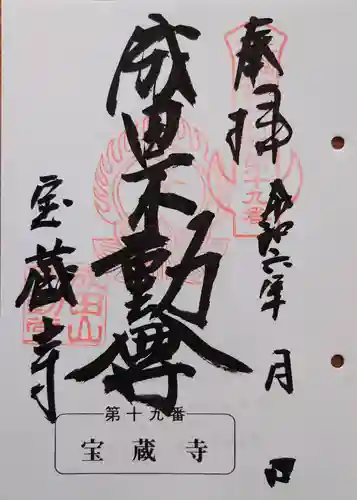 奉拝
令和六年 月 日
成田不動尊
宝蔵寺
成田山
第十九番
宝蔵寺